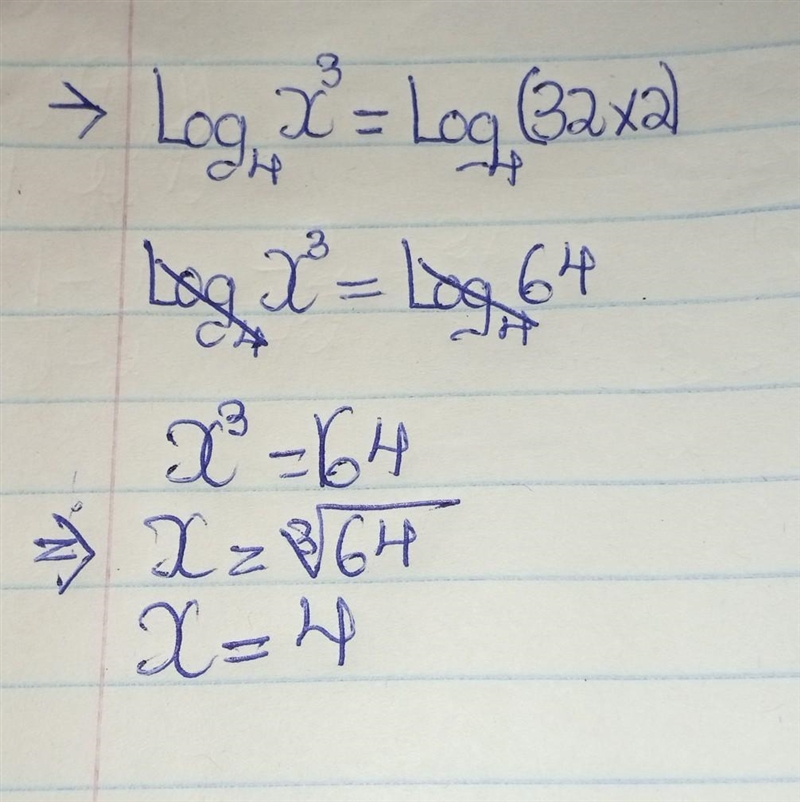 → Log₄ x³ = Log₄ (32×2)
Log₄ x³ = Log₄ 64
x³ = 64
⇒ x = ∛64
x = 4